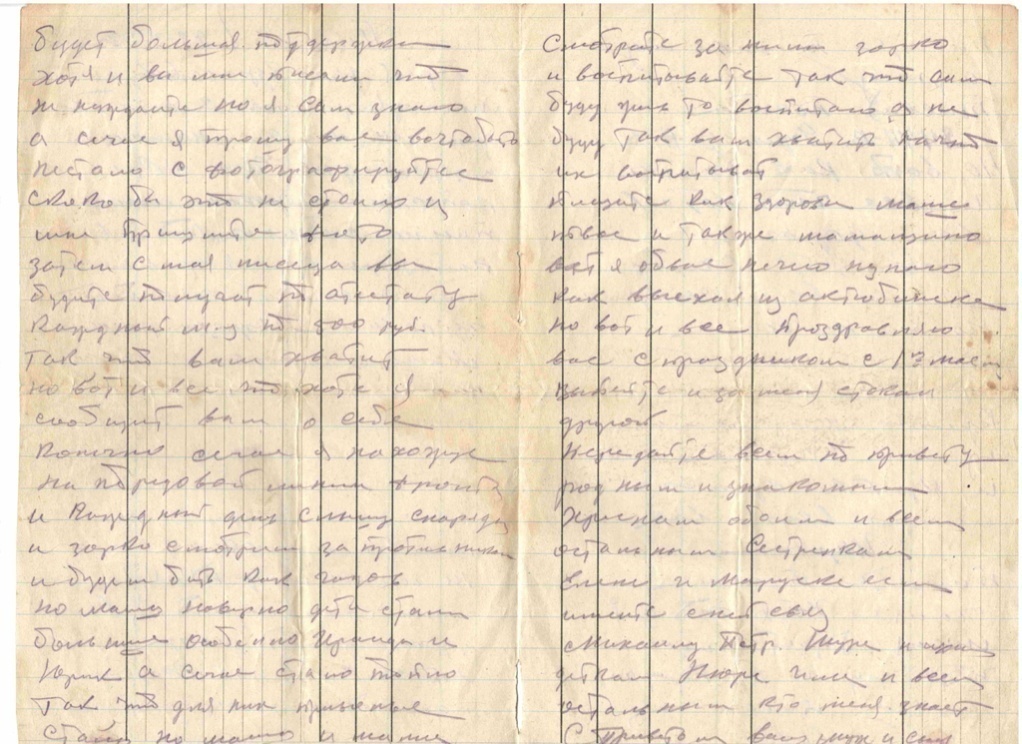 будет большаяподдержка
хотя и вы мне писали что
но я сам знаю
а сечас я прошу вас
с фотографируйтес
скоко бы это не стоило и
мне пришлите фото
затем с мая месеца вы
будите получат по атестату
каждый м-ц по 500 руб.
так что вам хватит
но вот и все что хотел я
сообщит вам о себе
конечно сечас я нахожус
на передовой линии фронта
и каждый день слышу снаряды
и зорко смотрим за противником
и будем бить как гадов
но маша наверно дети стали
большие особенно и
Юрик а сечас стало
так что для них
но маша и мама
Смотрите за ними зорко
и воспитывайте так что сам
буду жив то воспитаю а не
буду так вам хватит
их воспитыват
пишите как здоровя маше
и также мамашино
вот я обвас нечего
как выехал из актюбинска
но вот и все проздравляю
вас с праздником с 1 мая
выпейте и за меня стокан
другой
Передайте всем по привету
родным и знакомым
обоим и всем
остальным сестренкам
Елене и Марусе если
имеете с ней связ
Михаилу Петр. Шуре и их
деткам Нюре и всем
остальным кто меня знает
С приветом ваш муж и сын